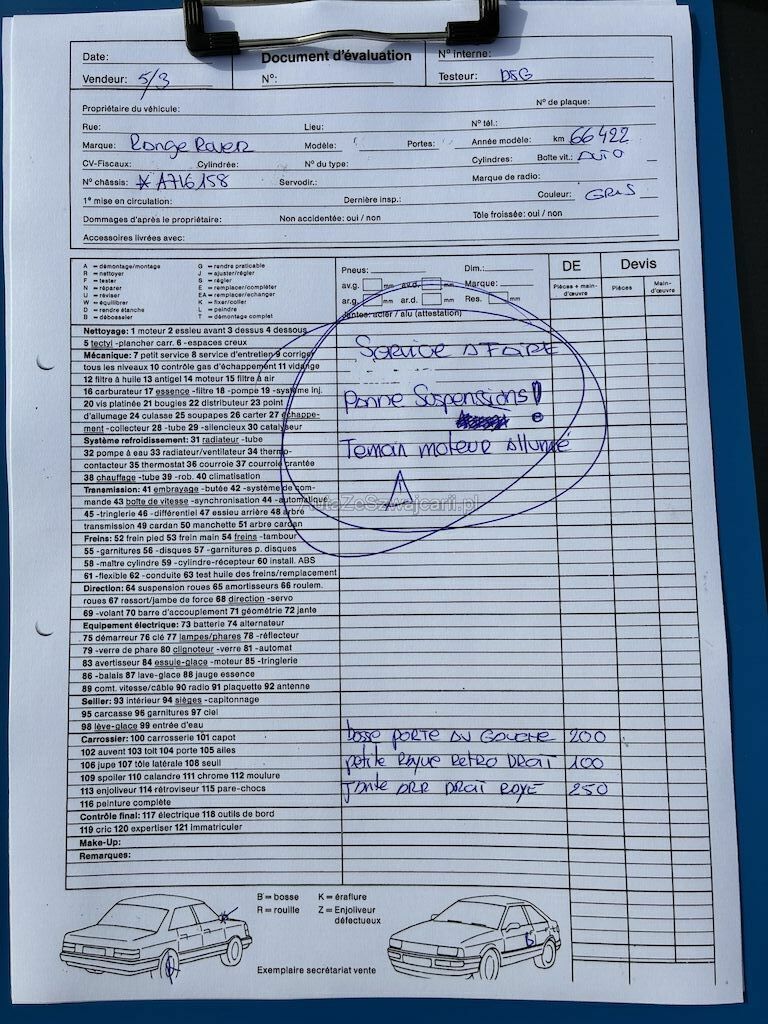 Date:
Document d'évaluation
N° interne:
Vendeur: 5/3
N°:
Testeur: DSG
Propriétaire du véhicule:
N° de plaque:
Rue:
Lieu:
N° tél.:
Marque: Range Rover
Modèle:
Portes:
Année modèle:
km 66422
CV-Fiscaux:
Cylindrée:
N° du type:
Cylindres:
Boîte vit.: AUTO
N° châssis: *A716158
Servodir.:
Marque de radio:
1° mise en circulation:
Dernière insp.:
Couleur: GRIS
Dommages d'après le propriétaire:
Non accidentée: oui / non
Tôle froissée: oui / non
Accessoires livrées avec:
A = démontage/montage
R = nettoyer
F = tester
N = réparer
U = réviser
W = équilibrer
D = rendre étanche
B = débosseler
G = rendre praticable
J = ajuster/régler
S = régler
E = remplacer/compléter
EA = remplacer/echanger
K = fixer/coller
L = peindre
T = démontage complet
Pneus:
Dim.:
av.g. mm av.d. mm Marque:
ar.g. mm ar.d. mm Res. mm
Jantes: acier / alu (attestation)
DE
Devis
Pièces + main-d'œuvre
Pièces
Main-d'œuvre
Nettoyage: 1 moteur 2 essieu avant 3 dessus 4 dessous
5 tectyl -plancher carr. 6 -espaces creux
Mécanique: 7 petit service 8 service d'entretien 9 corriger
SERVICE A FAIRE
tous les niveaux 10 contrôle gaz d'échappement 11 vidange
12 filtre à huile 13 antigel 14 moteur 15 filtre à air
16 carburateur 17 essence -filtre 18 -pompe 19 -système inj.
Panne Suspensions!
20 vis platinée 21 bougies 22 distributeur 23 point
d'allumage 24 culasse 25 soupapes 26 carter 27 échappe-
ment -collecteur 28 -tube 29 -silencieux 30 catalyseur
Système refroidissement: 31 radiateur -tube
Temoin moteur Allumé
32 pompe à eau 33 radiateur/ventilateur 34 thermo-
contacteur 35 thermostat 36 courroie 37 courroie crantée
38 chauffage -tube 39 -rob. 40 climatisation
Transmission: 41 embrayage -butée 42 -système de com-
mande 43 boîte de vitesse -synchronisation 44 -automatique
AutaZeSzwajcarii.pl
45 -tringlerie 46 -différentiel 47 essieu arrière 48 arbre
transmission 49 cardan 50 manchette 51 arbre cardan
Freins: 52 frein pied 53 frein main 54 freins -tambour
55 -garnitures 56 -disques 57 -garnitures p. disques
58 -maître cylindre 59 -cylindre-récepteur 60 install. ABS
61 -flexible 62 -conduite 63 test huile des freins/remplacement
Direction: 64 suspension roues 65 amortisseurs 66 roulem.
roues 67 ressort/jambe de force 68 direction -servo
69 -volant 70 barre d'accouplement 71 géométrie 72 jante
Equipement électrique: 73 batterie 74 alternateur
75 démarreur 76 clé 77 lampes/phares 78 -réflecteur
79 -verre de phare 80 clignoteur -verre 81 -automat
83 avertisseur 84 essuie-glace -moteur 85 -tringlerie
86 -balais 87 lave-glace 88 jauge essence
89 comt. vitesse/câble 90 radio 91 plaquette 92 antenne
Sellier: 93 intérieur 94 sièges -capitonnage
95 carcasse 96 garnitures 97 ciel
98 lève-glace 99 entrée d'eau
Carrossier: 100 carrosserie 101 capot
bosse PORTE AV GAUCHE 200
102 auvent 103 toit 104 porte 105 ailes
106 jupe 107 tôle latérale 108 seuil
petite Rayue Retro DROIT 100
109 spoiler 110 calandre 111 chrome 112 moulure
113 enjoliveur 114 rétroviseur 115 pare-chocs
Jante ARR DROIT RAYE 250
116 peinture complète
Contrôle final: 117 électrique 118 outils de bord
119 cric 120 expertiser 121 immatriculer
Make-Up:
Remarques:
B = bosse K = éraflure
R = rouille Z = Enjoliveur
défectueux
B
Exemplaire secrétariat vente